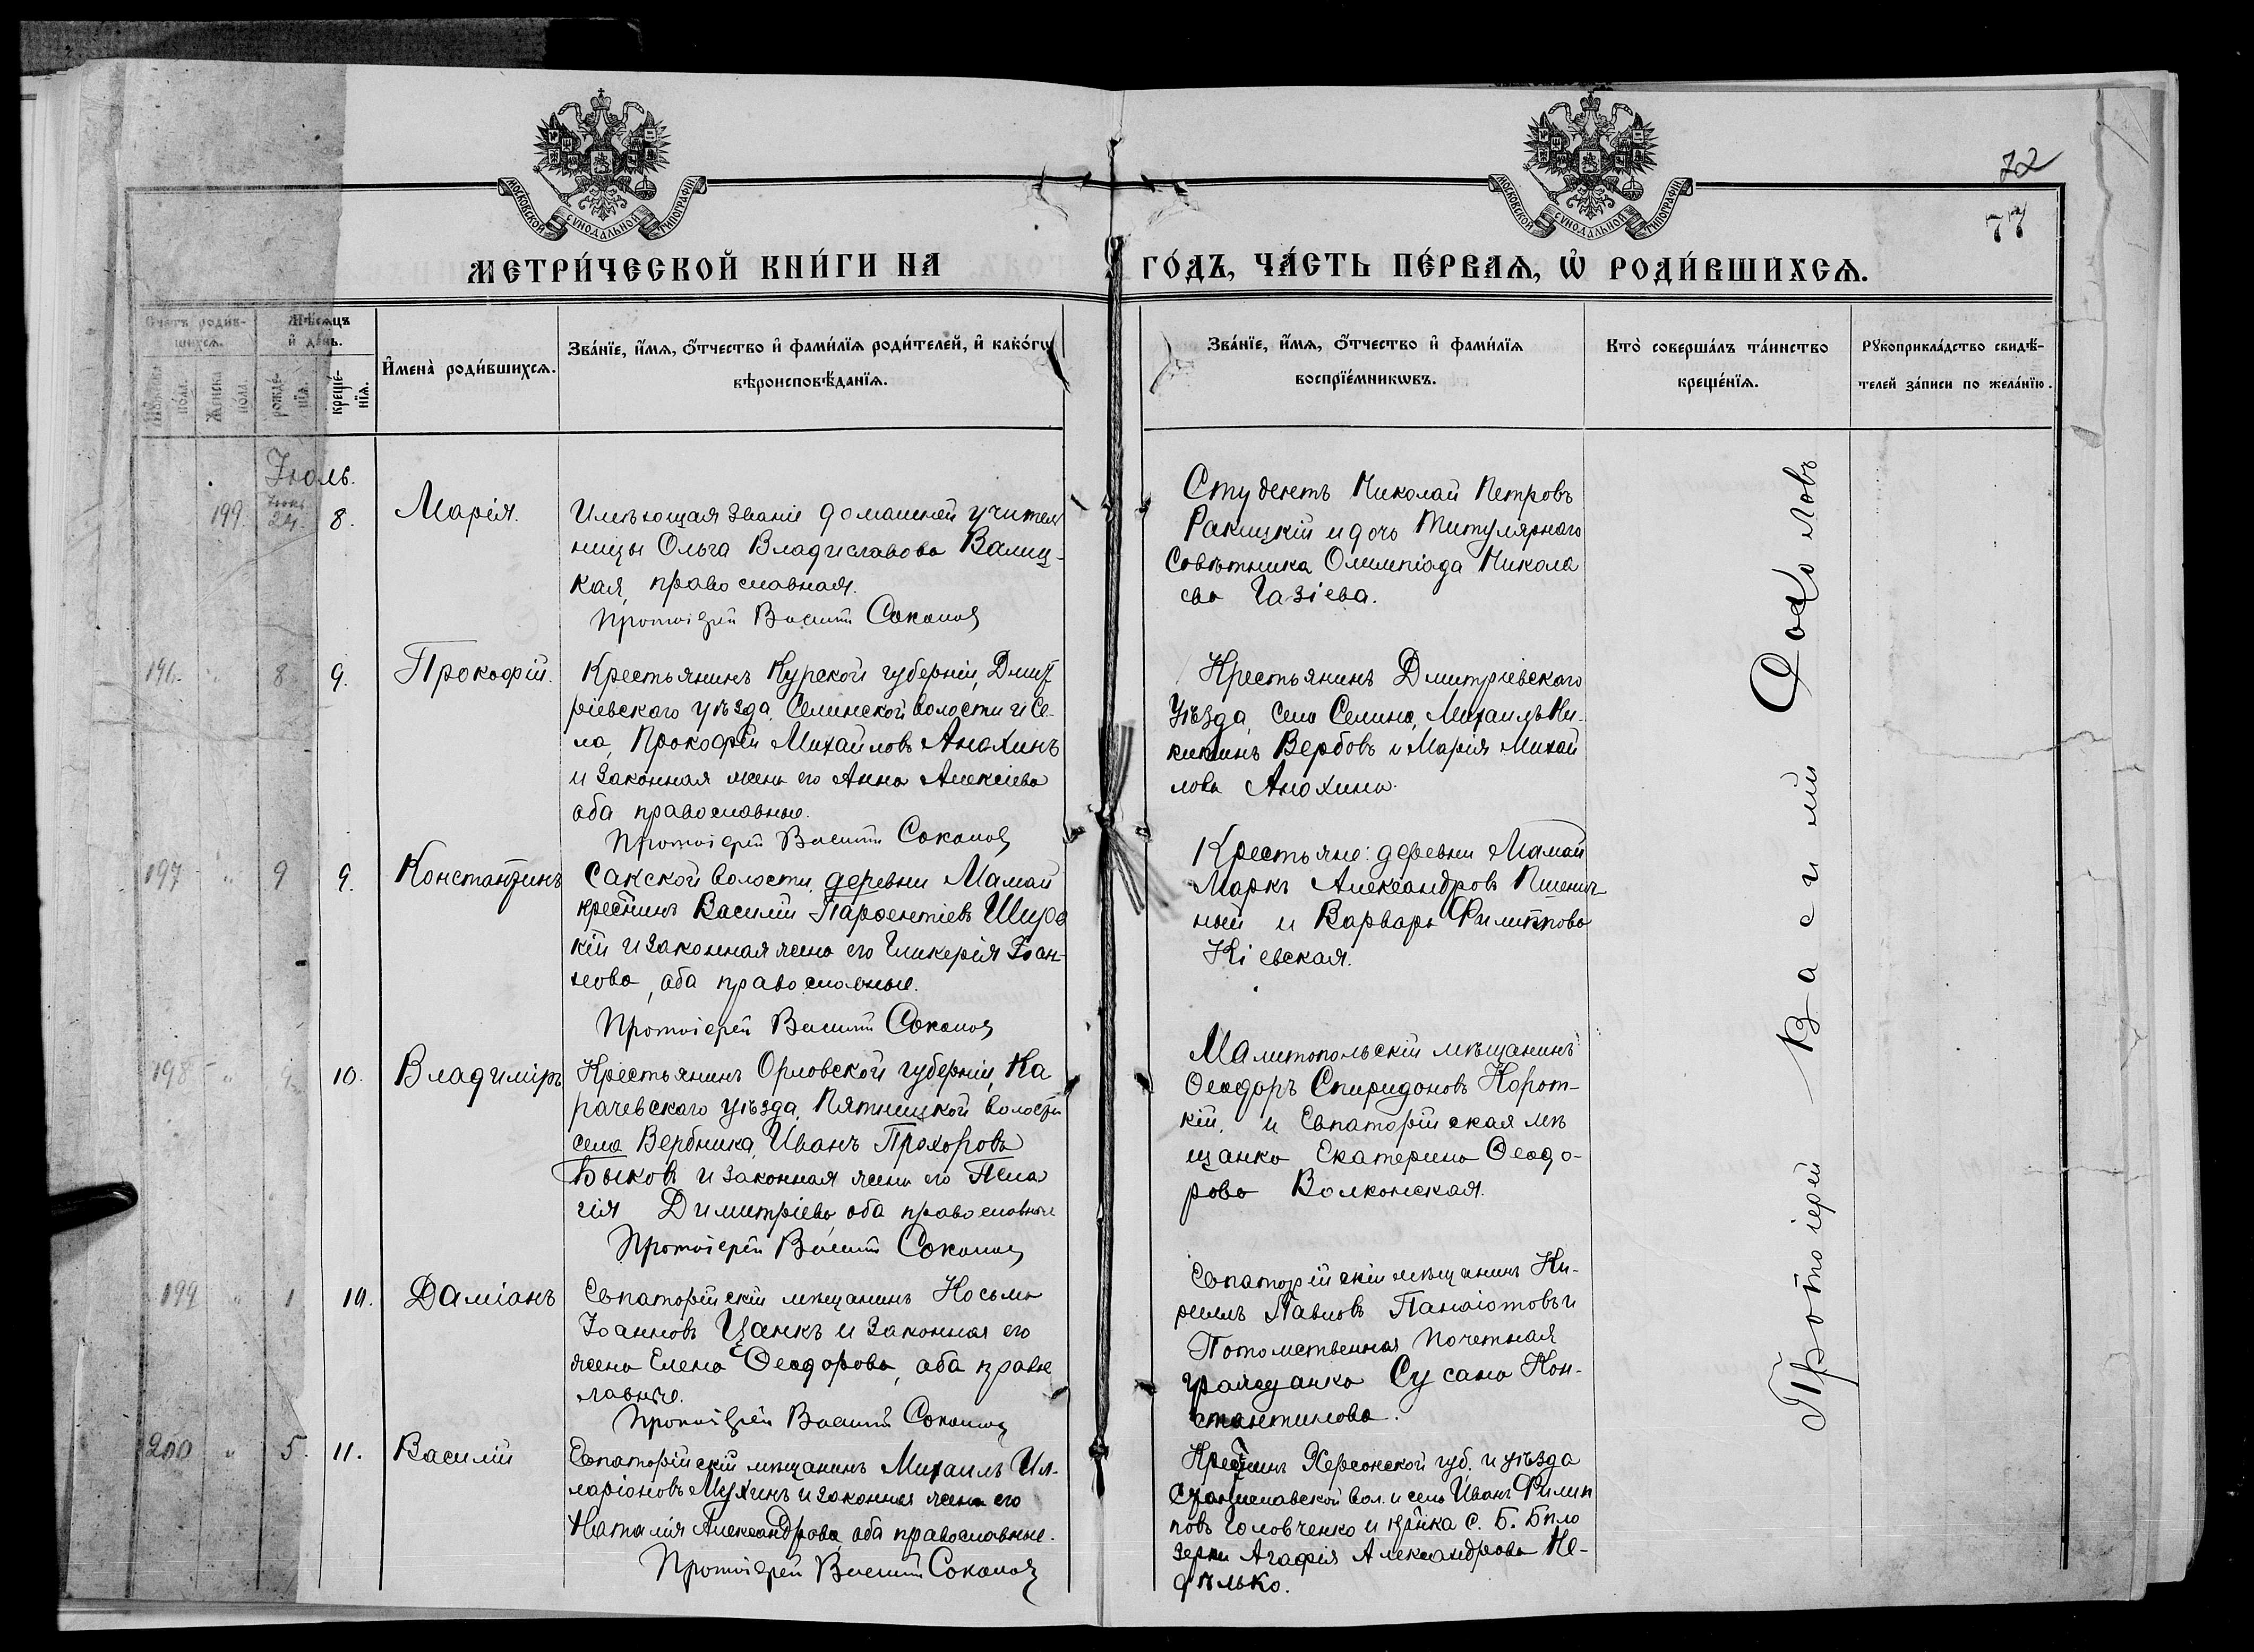 72
77
МОСКОВСКОЙ СѴНОДАЛЬНОЙ ТИПОГРАФІИ
МОСКОВСКОЙ СѴНОДАЛЬНОЙ ТИПОГРАФІИ
МЕТРИ́ЧЕСКОЙ КНИ́ГИ НА
ГО́ДЪ, ЧА́СТЬ ПЕ́РВАѦ, Ѡ҆ РОДИ́ВШИХСѦ.
Счетъ роди́в-
шихсѧ.
Мѣ́сѧцъ
и҆ де́нь.
Мꙋжеска
по́ла.
Женска
по́ла.
рожде́-
нїѧ.
креще́-
нїѧ.
И҆мена̀ роди́вшихсѧ.
Зва́нїе, и҆́мѧ, ѻ҆́тчество и҆ фами́лїѧ роди́телей, и҆ како́гѡ
вѣроисповѣ́данїѧ.
Зва́нїе, и҆́мѧ, ѻ҆́тчество и҆ фами́лїѧ
воспрїе́мникѡвъ.
Кто̀ соверша́лъ та́инство
креще́нїѧ.
Рꙋкоприкла́дство свидѣ́-
телей за́писи по жела́нїю.
Іюль.
199. Іюнь 24. 8. Марія.
Имѣющая званіе домашней учитель
ницы Ольга Владиславова Валиц-
кая, православная.
Протоіерей Василій Соколов
Студентъ Николай Петровъ
Ракицкій и дочь Титулярнаго
Совѣтника Олимпіада Никола
ева Газіева.
196. " 8 9. Прокофій.
Крестьянинъ Курской губерніи, Дмит
ріевскаго уѣзда, Селинской волости и Се-
ла, Прокофій Михайловъ Анохинъ
и законная жена его Анна Алексіева
оба православные.
Протоіерей Василій Соколов
Крестьянинъ Дмитріевскаго
уѣзда, села Селина, Михаилъ Ни-
китинъ Вербовъ и Марія Михай
лова Анохина.
197 " 9 9. Константинъ
Сакской волости, деревни Мамай
крестнинъ Василій Парфентіевъ
кій и законная жена его Гликерія Іоан-
нова, оба православные.
Протоіерей Василій Соколов
Крестьяне: деревни Мамай
Маркъ Александровъ Пшенич-
ный и Варвара Филиппова
Кіевская.
198 " 9 10. Владиміръ
Крестьянинъ Орловской губерніи, Ка
рачевскаго уѣзда, Пятницкой волости
села Вербника, Иванъ Прохоровъ
Быков и законная жена его Пела
гія Димитріева, оба православные
Протоіерей Василій Соколов
Малитопольскій мѣщанинъ
Ѳеодоръ Спиридоновъ Корот-
кій, и Евпаторійская мѣ
щанка Екатерина Ѳеодо-
рова Волконская.
199 " 1 10. Даміанъ
Евпаторійскій мѣщанинъ Косьма
Іоанновъ Цанкъ и законная его
жена Елена Ѳеодорова, оба правос
лавные.
Протоіерей Василій Соколов
Евпаторійскій мѣщанинъ Ки-
риллъ Павловъ Панаіотовъ и
Потомственная почетная
гражданка Сусана Кон-
стантинова.
200 " 5. 11. Василій
Евпаторійскій мѣщанинъ Михаилъ Ил-
ларіоновъ Мухинъ и законная жена его
Наталія Александрова, оба православные.
Протоіерей Василій Соколов
Крестнинъ Херсонской губ. и уѣзда
Станиславской вол. и села Иванъ Филип
повъ Головченко и кр-нка с. Б. Бѣло
зерки Агафія Александрова Не-
дѣлько.
Протоіерей Василій Соколовъ